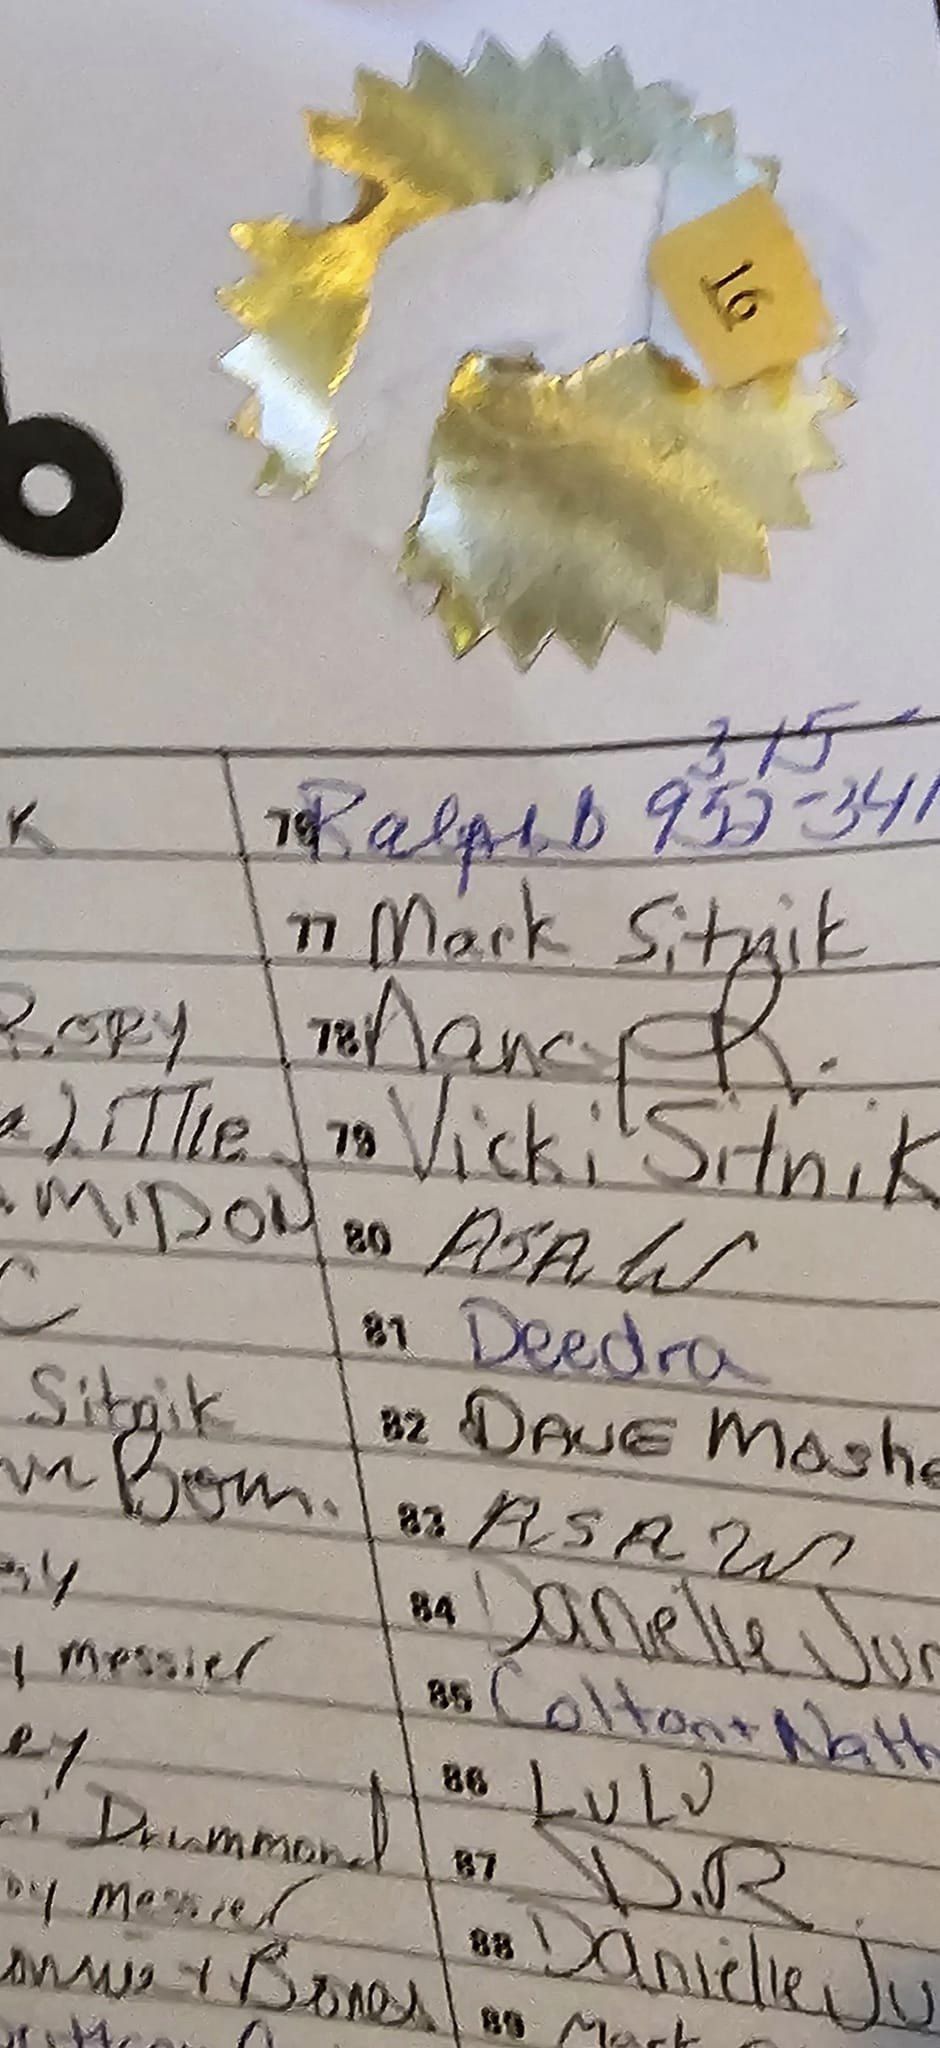 16
315-
K
76 Ralph D 952-341
77 Mark Sitnik
Rory
78 Nancy R.
Little
79 Vicki Sitnik
MIDON
80 ASA W
C
81 Deedra
Sitnik
82 DAVE Moshe
Bom.
83 ASA W
sy
84 Danielle Jun
y Messier
85 Colton + Nath
ey
86 LuLu
i Drummond
87 D.R.
by Messier
88 Danielle Ju
+ Bones
89 Mark